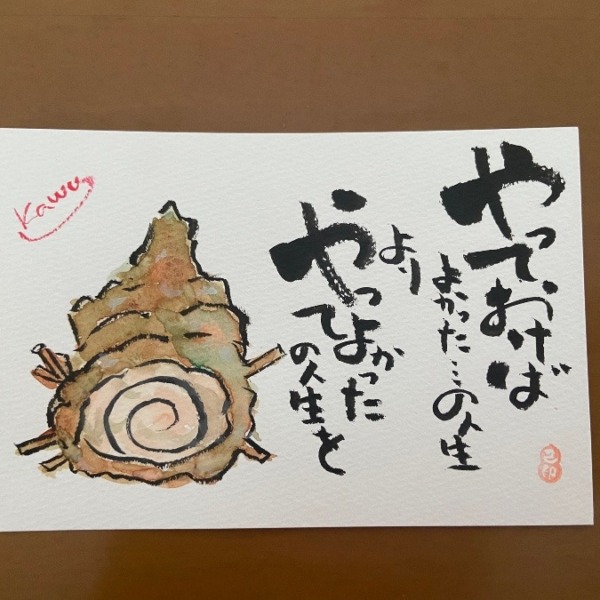 やっておけば
よかった…の人生
より
やってよかった
の人生を
Kawu